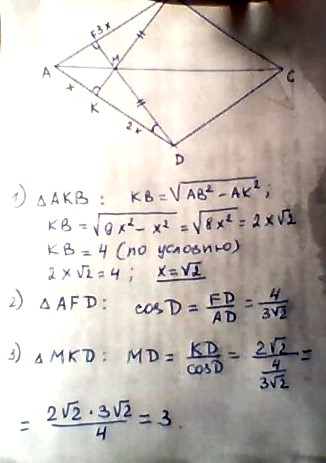 F 3x
A M C
x
K
2x
D
1) △AKB: KB = √(AB² - AK²);
KB = √(9x² - x²) = √(8x²) = 2x√2
KB = 4 (по условию)
2x√2 = 4; x = √2
2) △AFD: cosD = FD/AD = 4/(3√2)
3) △MKD: MD = KD/cosD = 2√2/(4/(3√2)) =
= (2√2 · 3√2)/4 = 3.